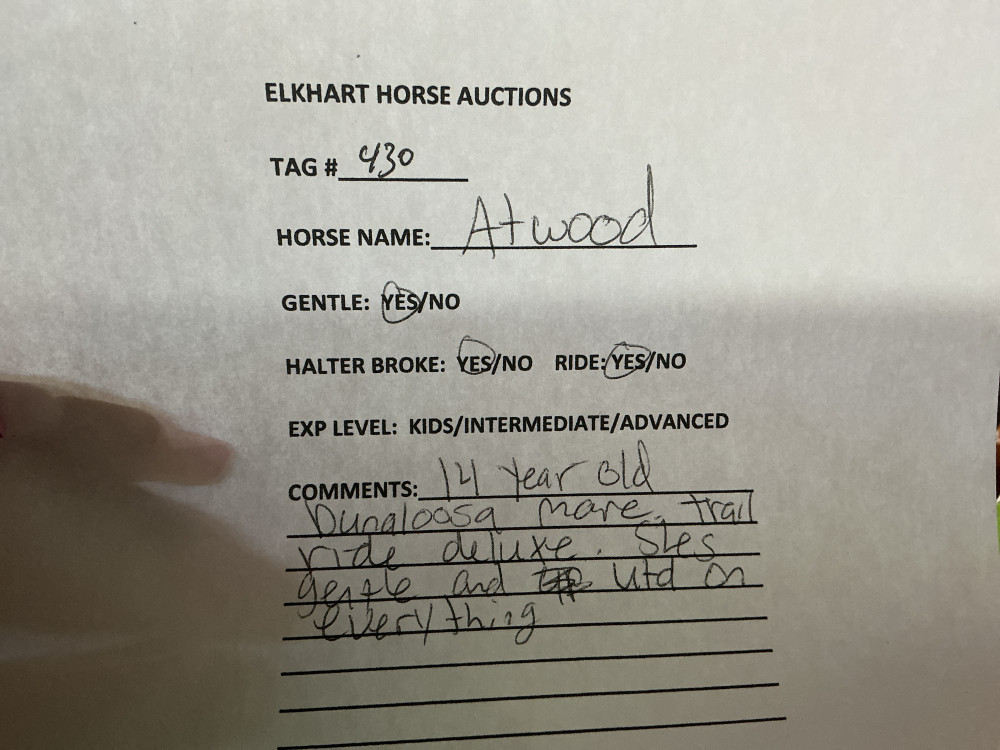 ELKHART HORSE AUCTIONS
TAG # 430
HORSE NAME: Atwood
GENTLE: YES/NO
HALTER BROKE: YES/NO RIDE: YES/NO
EXP LEVEL: KIDS/INTERMEDIATE/ADVANCED
COMMENTS: 14 year old
Dunaloosa mare. trail
ride deluxe. Shes
gentle and utd on
everything